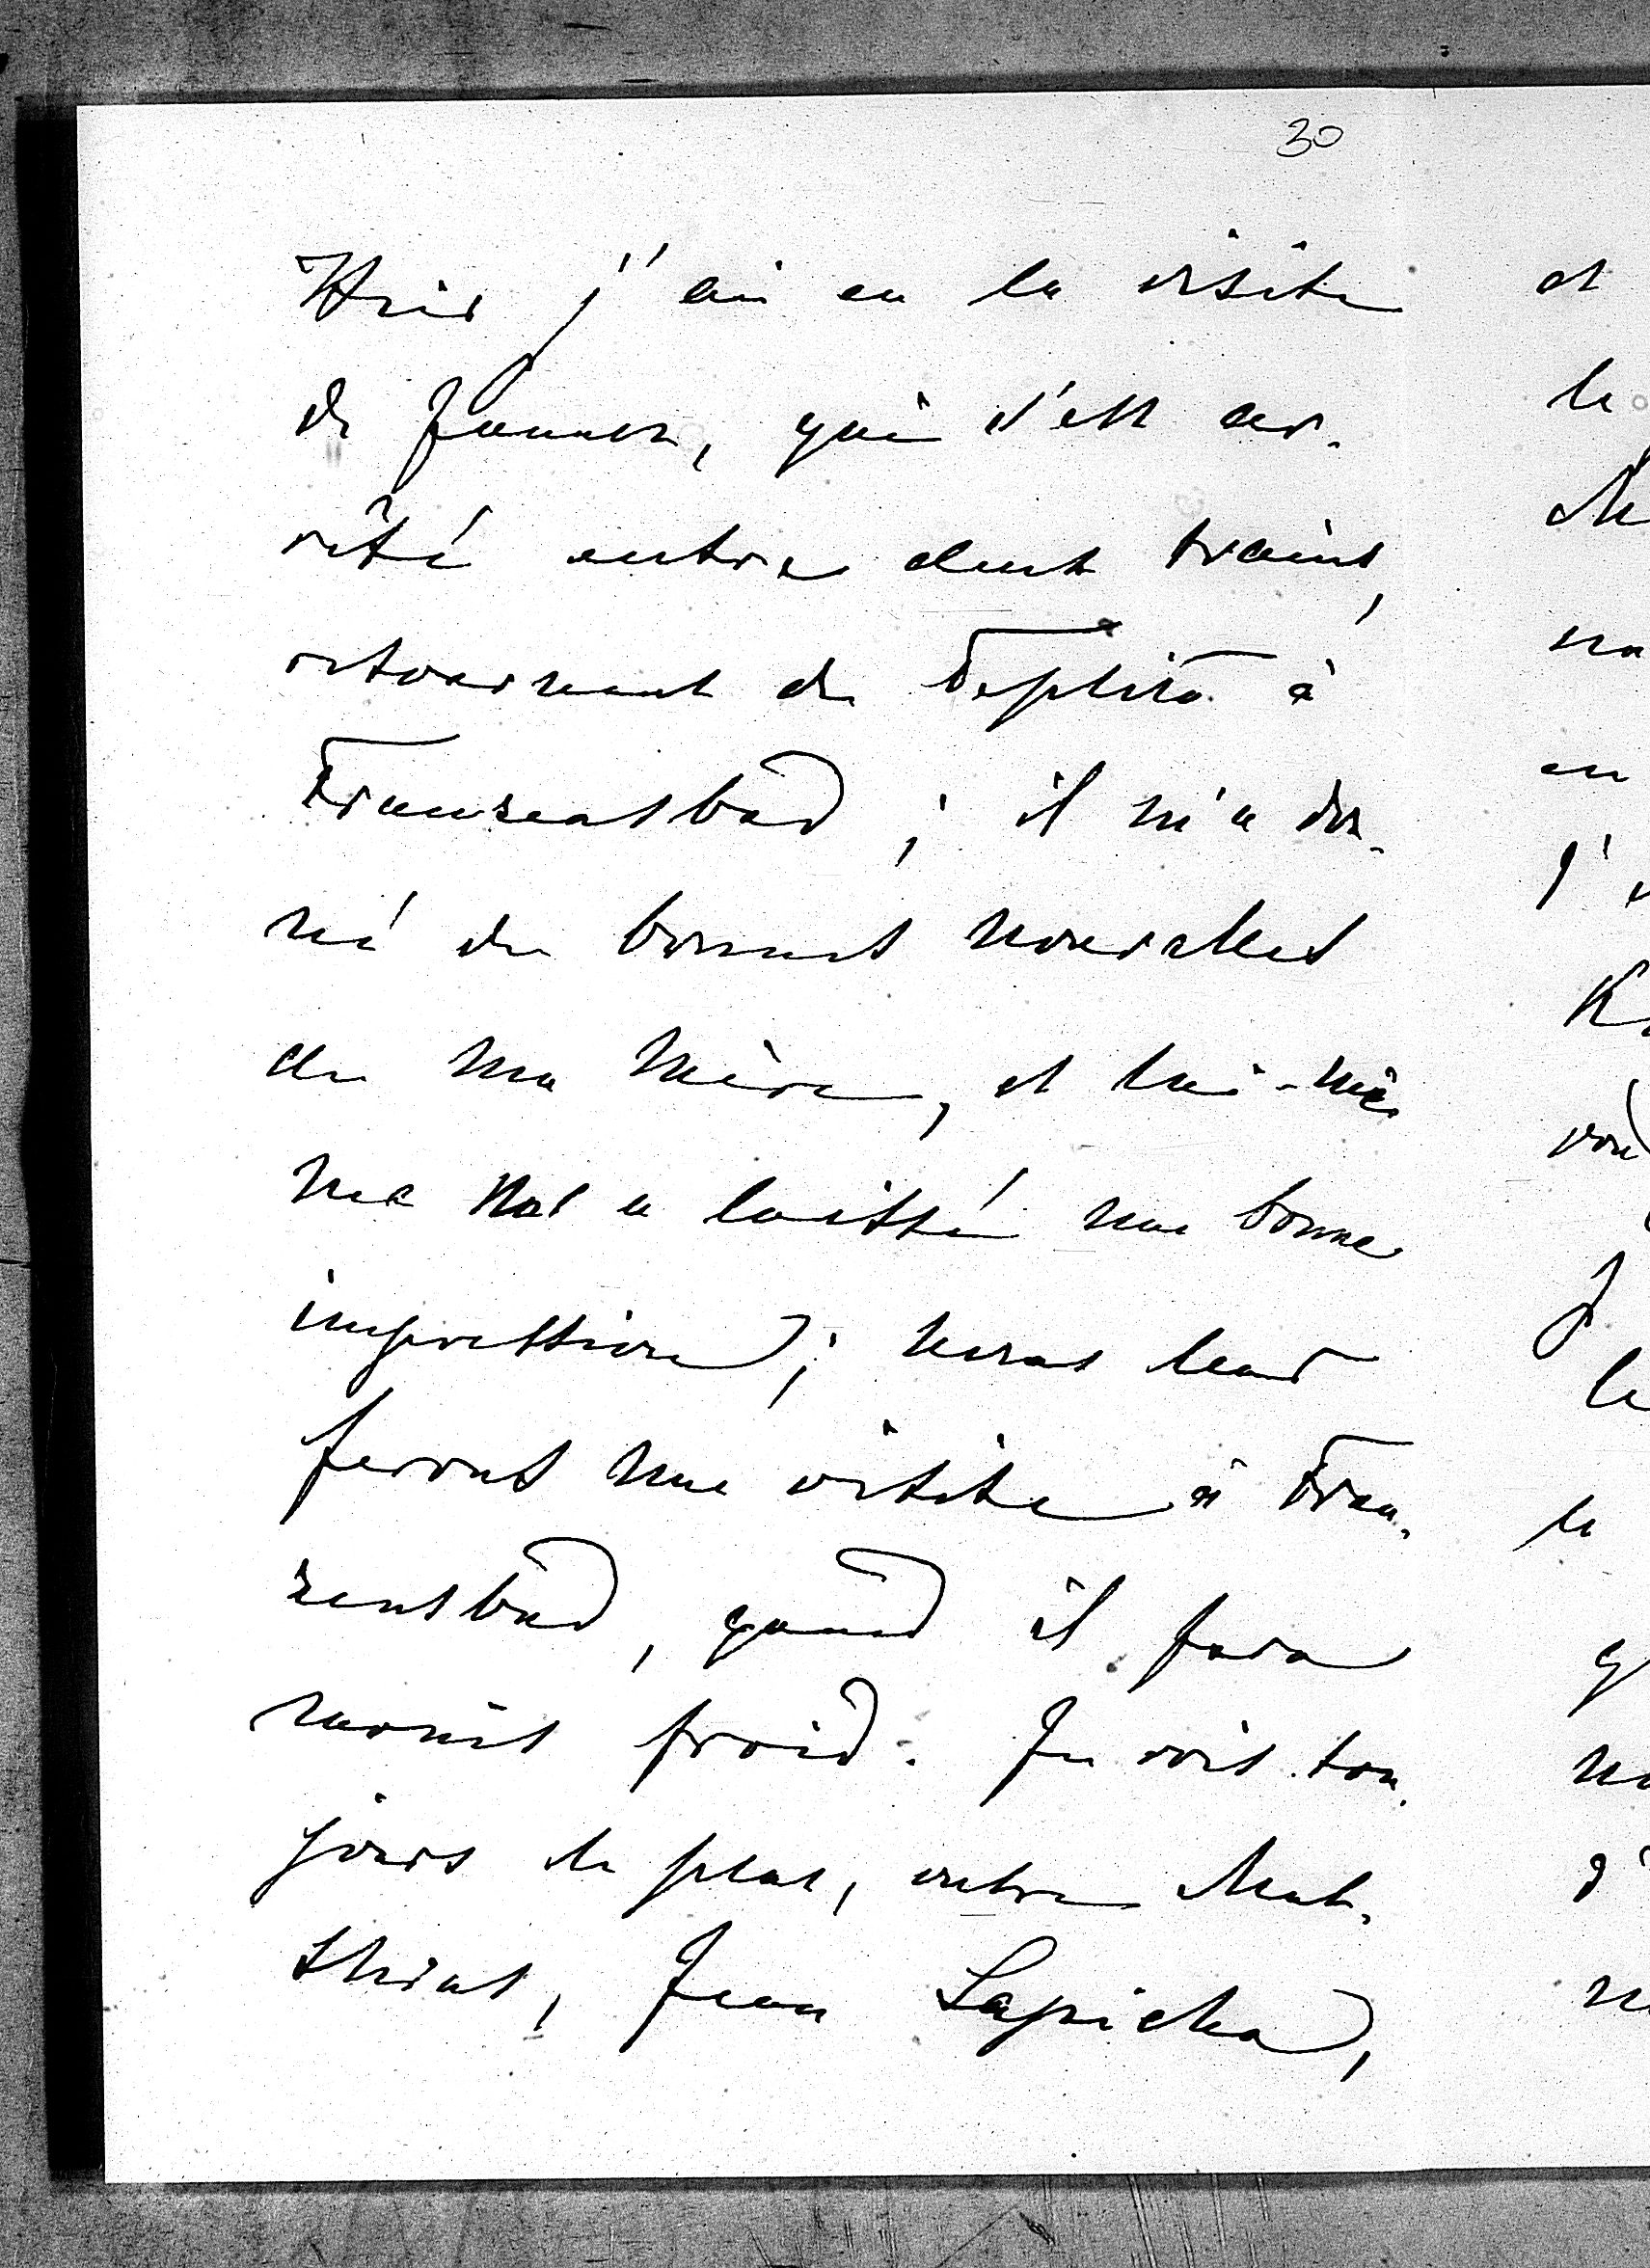 30
Hier j'ai eu la visite
de James, qui s'est ar-
rêté entre deux trains,
retournant de Teplitz à
Franzensbad; il m'a don-
né de bonnes nouvelles
de ma mère, et lui-mê-
me a laissé une bonne
impression; nous leur
ferons une visite à Fran-
zensbad, quand il fera
moins froid. Je vois tou-
jours de plus, outre Mat-
thias, Jean
et
le
en
le